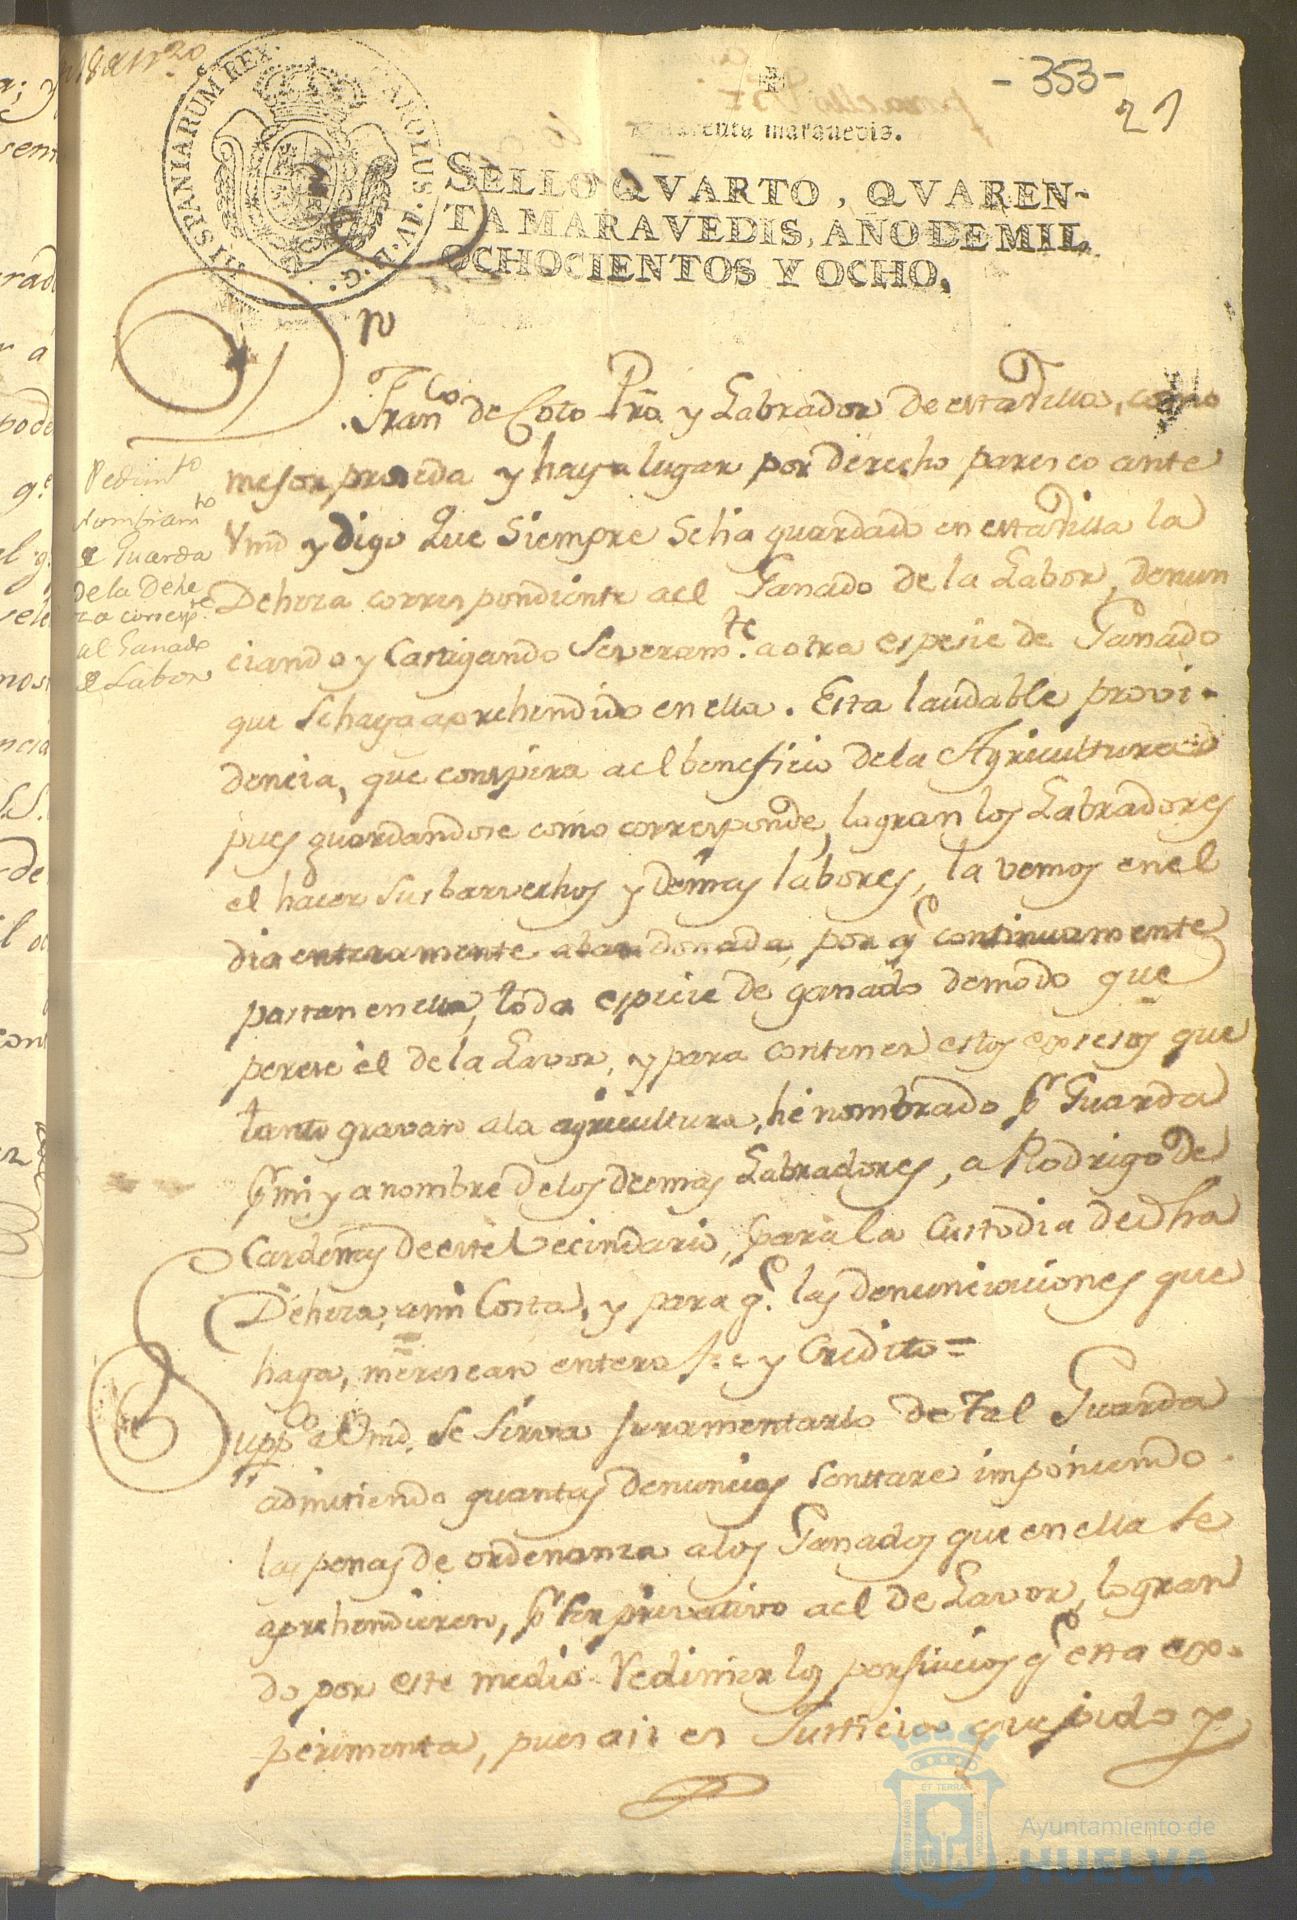 -353-
21
Quarenta maravedis.
HISPANIARUM REX. CAROLUS. IV. D. G.
SELLO QVARTO, QVAREN-
TA MARAVEDIS, AÑO DE MIL
OCHOCIENTOS Y OCHO.
Pedim.to
Nombram.to
de Guarda
de la Dehe
za corresp.te
al Ganado
de Labor
Fran.co de Coto Pro. y Labrador de esta Villa, como
mejor proseda y haya lugar por derecho paresco ante
Vmd y digo Que Siempre Se ha guardado en esta Villa la
Deheza correspondiente ael Ganado de la Labor, denun
ciando y Castigando Severam.te a otra espesie de Ganado
que Se haya aprehendido en ella. Esta laudable provi-
dencia, que conspira ael beneficio de la Agricultura
pues guardandose como corresponde, logran los Labradores
el hacer Sus barvechos y demas labores, la vemos en el
dia enteramente abandonada, por q.e continuamente
pastan en ella, toda especie de ganado de modo que
perese el de la Lavor, y para contener estos exsesos que
tanto gravan a la agricultura, he nombrado p.r Guarda
p.r mi y a nombre de los demas Labradores, a Rodrigo de
Cardenas de este Vecindario, para la Custodia de dha
Deheza, a mi Costa, y para q.e las denunciaciones que
haga, merescan entera fee y Credito =
Supp.co a Vmd. se Sirva juramentarlo de tal Guarda
admitiendo quantas denuncias senttare imponiendo
las penas de ordenanza a los Ganados que en ella se
aprehendieren, p.r ser privativo ael de Lavor, logran
do por este medio Redimir los perjuicios q.e esta ex-
perimenta, pues asi es Justicia que pido y
Ayuntamiento de
HUELVA